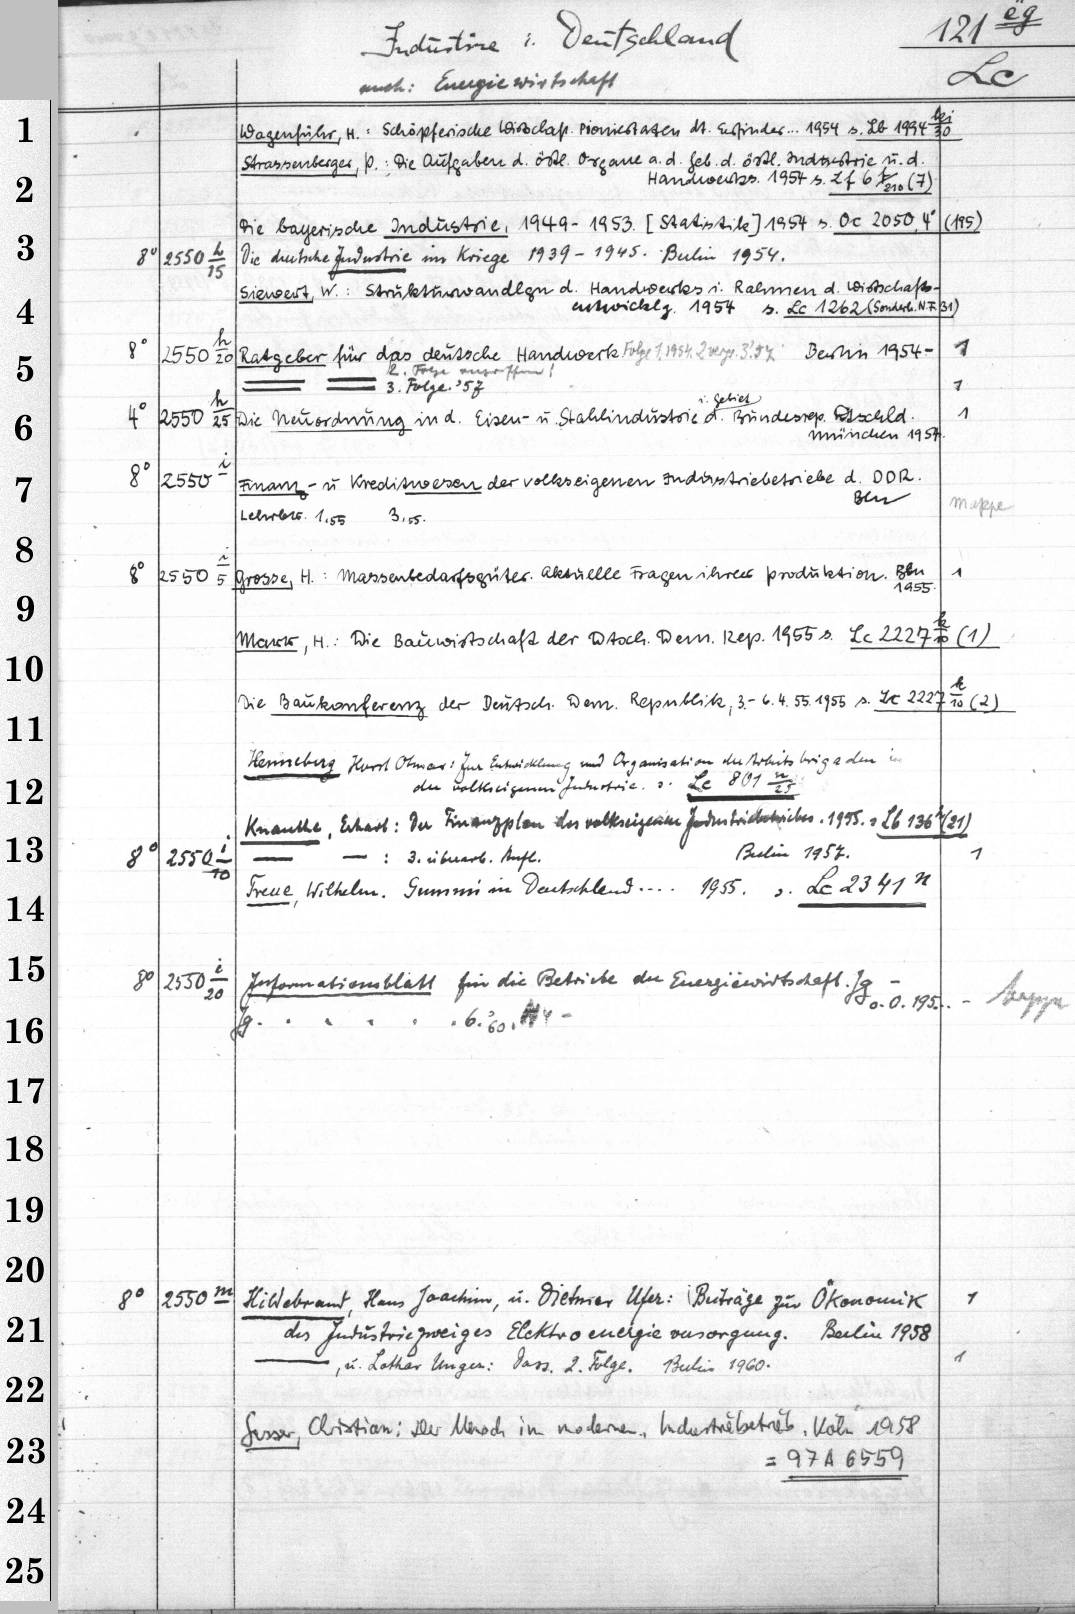 Industrie i. Deutschland 121 ëg
auch: Energiewirtschaft Lc
1 Wagenführ, H.: Schöpferische Wirtschaft. Pioniertaten dt. Erfinder... 1954 s. Lb 1994 bei/30
Strassenberger, P.: Die Aufgaben d. örtl. Organe a. d. Geb. d. örtl. Industrie u. d.
2 Handwerks. 1954 s. Lf 6 /210 (7)
Die bayerische Industrie, 1949-1953. [Statistik] 1954 s. Oc 2050, 4° (195)
3 8° 2550 h/15 Die deutsche Industrie im Kriege 1939-1945. Berlin 1954.
Siewert, W.: Strukturwandlgn d. Handwerks i. Rahmen d. Wirtschafts-
4 entwicklg. 1954 s. Lc 1262 (Sonderh. N.F. 31)
8° 2550 h/20 Ratgeber für das deutsche Handwerk Folge 1.1954. 2 verg. 3.'57 Berlin 1954- 1
5 2. Folge vergriffen!
3. Folge. '57 1
i. Gebiet
6 4° 2550 h/25 Die Neuordnung in d. Eisen- u. Stahlindustrie d. Bundesrep. Dtschld. 1
München 1954.
7 8° 2550 i Finanz- u Kreditwesen der volkseigenen Industriebetriebe d. DDR.
Bln
Lehrbr. 1.55 3.55. Mappe
8
8° 2550 i/5 Grosse, H.: Massenbedarfsgüter. Aktuelle Fragen ihrer Produktion. Bln 1
1955.
9
Mark, H.: Die Bauwirtschaft der Dtsch. Dem. Rep. 1955 s. Lc 2227 k/10 (1)
10
Die Baukonferenz der Deutsch. Dem. Republik, 3.-6.4.55. 1955 s. Lc 2227 k/10 (2)
11
Henneberg Horst Otmar: Zur Entwicklung und Organisation der Arbeitsbrigaden in
12 der volkseigenen Industrie. s. Lc 801 n/25
Knauthe, Erhart: Der Finanzplan des volkseigenen Industriebetriebes. 1955. s Lb 136 h (21)
13 8° 2550 i/10 — — : 3. überarb. Aufl. Berlin 1957. 1
14 Treue, Wilhelm. Gummi in Deutschland.... 1955. s. Lc 2341 n
15 8° 2550 i/20 Informationsblatt für die Betriebe der Energiewirtschaft. Jg -
o.O. 195.. - Mappe
16 Jg. . . . . . . 6.'60. -
17
18
19
20
21 8° 2550 m Hildebrand, Hans Joachim, u. Dietmar Ufer: Beiträge zur Ökonomik 1
des Industriezweiges Elektroenergieversorgung. Berlin 1958
22 —, u. Lothar Unger: Dass. 2. Folge. Berlin 1960. 1
23 Gasser, Christian: Der Mensch im modernen Industriebetrieb. Köln 1958
= 97 A 6559
24
25